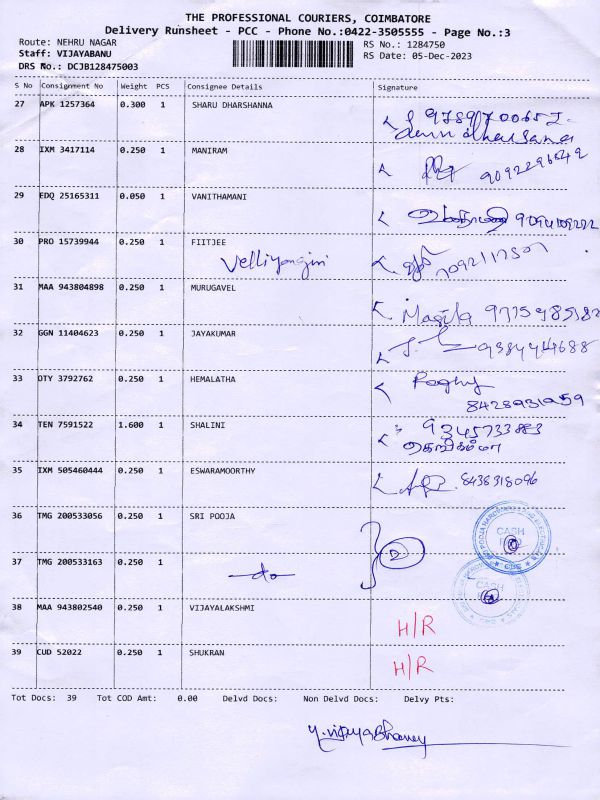 THE PROFESSIONAL COURIERS, COIMBATORE
Delivery Runsheet - PCC - Phone No.:0422-3505555 - Page No.:3
Route: NEHRU NAGAR
RS No.: 1284750
Staff: VIJAYABANU
RS Date: 05-Dec-2023
DRS No.: DCJB128475003
S No Consignment No Weight PCS Consignee Details Signature
27 APK 1257364 0.300 1 SHARU DHARSHANNA
28 IXM 3417114 0.250 1 MANIRAM
9092296649
29 EDQ 25165311 0.050 1 VANITHAMANI
30 PRO 15739944 0.250 1 FIITJEE
Velliyangiri
7092117507
31 MAA 943804898 0.250 1 MURUGAVEL
32 GGN 11404623 0.250 1 JAYAKUMAR
9384444688
33 OTY 3792762 0.250 1 HEMALATHA
Raghu
8428931959
34 TEN 7591522 1.600 1 SHALINI
9345733883
35 IXM 505460444 0.250 1 ESWARAMOORTHY
8438318096
36 TMG 200533056 0.250 1 SRI POOJA
37 TMG 200533163 0.250 1
do
CASH
CASH
CBE
38 MAA 943802540 0.250 1 VIJAYALAKSHMI
H/R
39 CUD 52022 0.250 1 SHUKRAN
H/R
Tot Docs: 39 Tot COD Amt: 0.00 Delvd Docs: Non Delvd Docs: Delvy Pts: